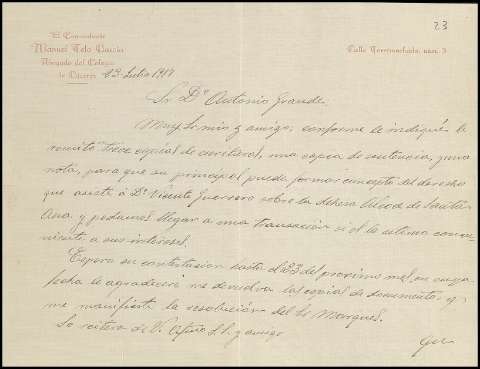 23
El Comandante
Manuel Telo García
Abogado del Colegio
de Cáceres
Calle Torremochada, núm. 3
13-Julio 1917
Sr Dn Antonio Grande
Muy Sr mio y amigo: conforme le indiqué le
remito trece copias de escrituras, una copia de sentencia, y una
nota, para que su principal pueda formar concepto del derecho
que asiste á Dn Vicente Guerrero sobre la dehesa Alcor de Santa
Ana y podamos llegar a una transacción si él lo estima conve-
niente a sus intereses.
Espero su contestacion hasta el 23 del proximo mes, en cuya
fecha le agradeceré me devuelva las copias de documentos y
me manifieste la resolución del Sr Marques.
Se reitera de V. afmo s.s. y amigo